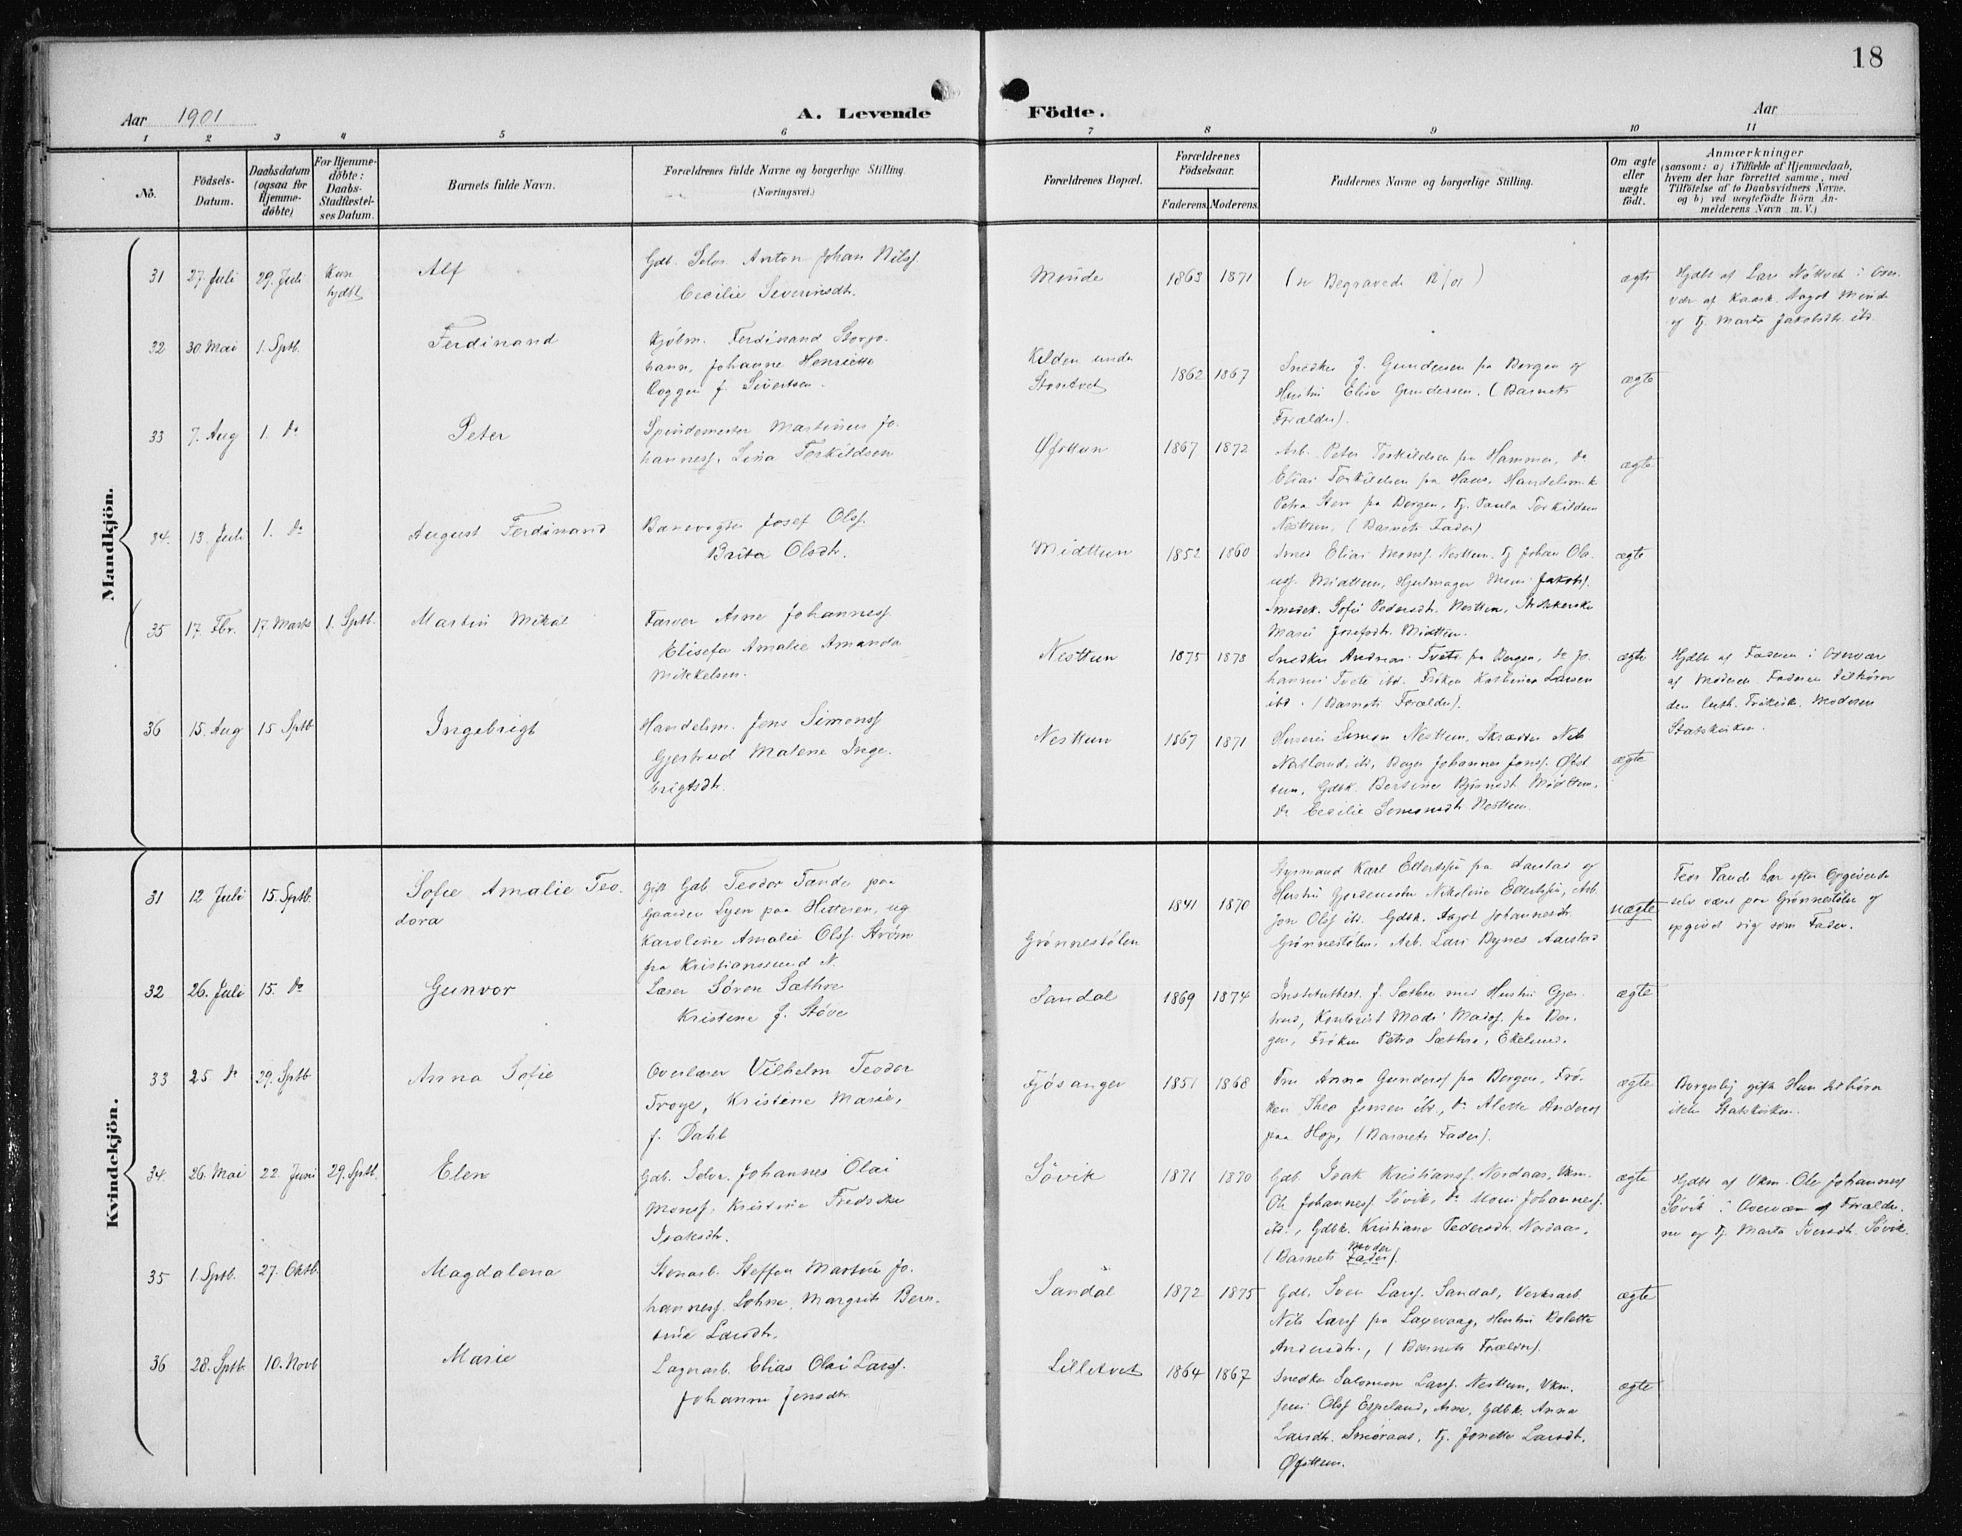 18
Aar 1901 A. Levende Födte. Aar
1 2 3 4 5 6 7 8 9 10 11
No. Födsels-Datum. Daabsdatum (ogsaa for Hjemme-döbte) For Hjemme-döbte: Daabs-Stadfæstel-ses Datum. Barnets fulde Navn. Forældrenes fulde Navne og borgerlige Stilling. (Næringsvei.) Forældrenes Bopæl. Forældrenes Födselsaar. Faderens. Moderens. Faddernes Navne og borgerlige Stilling. Om ægte eller uægte födt. Anmærkninger (saasom: a) i Tilfælde af Hjemmedaab, hvem der har forrettet samme, med Tilföielse af to Daabsvidners Navne, og b) ved uægtefödte Börn An-melderens Navn m. V.)
Mandkjön.
31 27 Juli 29. Juli Kun hjdbt Alf
Gdb. Selv. Anton Johan Nilss.
Cecilie Severinsdtr.
Minde 1863 1871 ægte
Hjdbt af Lars Nøttvet i Over-
vær af
og Tj. Marta Jakobsdtr. ibd.
32 30 Mai 1. Sptb. Ferdinand
Kjøbm. Ferdinand Storjo-
hann, Johanne Henriette
f. Sivertsen.
Kilden under
Storetvet 1862 1867
Snedker J. Gundersen fra Bergen og
Hustru Elise Gundersen. (Barnets
Forældre).
ægte
33 7. Aug 1. Do Peter
Spindemester Martinus Jo-
hanness. Lina Torkildsen
Øvsttun 1867 1872
Arb. Peter Torkildsen fra Hammer, Do
Elias Torkildsen fra Haus, Handelsm.k
Petra Sten fra Bergen, Tj. Paula Torkildsen
Nesttun, (Barnets Fader)
ægte
34. 13. Juli 1. Do August Ferdinand
Banevogter Josef Olss.
Brita Olsdtr.
Midttun 1852 1860
Smed Elias Monss. Nesttun. Tj. Johan Ola-
uss. Midttun, Hjulmager Mons Jakobs.
Smedek. Sofie Pedersdtr. Nesttun,
Marie Josefsdtr. Midttun.
ægte
35 17. Fbr. 17 Marts 1. Sptb. Martin Mikal
Farver Arne Johanness.
Elisefa Amalie Amanda
Mikkelsen.
Nesttun 1875 1878
Snedker Andreas Tvete fra Bergen, Do Jo-
hannes Tvete ibd. Frøken Katrine Larsen
ibd. (Barnets Forældre).
ægte
Hjdbt af Faderen i Overvær
af Moderen. Faderen tilhører
den luth. Frikirk. Moderen
Statskirken.
36 15. Aug 15 Sptb Ingebrigt
Handelsm. Jens Simonss
Gjertrud Malene Inge-
brigtsdtr.
Nesttun 1867 1871
Simon Nesttun, Skrædder Nils
Natland, ibd, Bager Johannes Jenss. Øvst
tun, Gdbk. Bertine Bjørnsdt Midttun,
Do Cecilie Simonsdt Nesttun.
ægte
Kvindekjön.
31 12 Juli 15. Sptb. Sofie Amalie Teo-
dora
Gift Gab. Teodor Tande paa
Gaarden Lyen paa Hitteren, og
Karoline Amalie Olsf. Strøm
fra Kristianssund N.
Grønnestølen 1841 1870
Karl Ellertssen fra Aarstad og
Hustru Nikoline Ellertssen, Arb.
Jon Olss ibd. Gdbk. Aagot Johannesdt.
Grønnestølen. Arb. Lars Bynes Aarstad
uægte
Teod Tande har efter Opgivende
selv været paa Grønnestølen og
opgivet sig som Fader.
32 26. Juli 15. Do Gunvor
Lærer Søren Sæthre
Kristine f. Støve
Sandal 1869 1874
Institutbest. J. Sæthre med Hustru Gjer-
trud, Kontorist Mads Madss. fra Ber-
gen, Frøken Petra Sæthre, Ekelund.
ægte
33 25. Do 29. Sptb Anna Sofie
Overlærer Vilhelm Teodor
Troye, Kristine Marie,
f. Dahl
Fjøsanger 1851 1868
Fru Anna Gunders fra Bergen, Frø-
ken Thea Jensen ibd., Do Alette Anders
paa Hop, (Barnets Fader).
ægte
Borgerlig gift Hun tilhører
ikke Statskirken.
34. 26. Mai 22. Juni 29. Sptb. Elen
Gab. Selv. Johannes Olai
Monss. Kristine Fredrikke
Isaksdtr.
Søvik 1871 1870
Gab. Isak Kristianss. Nordaas, Ukm.
Ole Johanness Søvik, Do Mons Johanness.
ib., Gdbk. Kristiane Pedersdt. Nordaas,
(Barnets Moder Fader).
ægte
Hjdbt af Ukm. Ole Johanness
Søvik i Overvær af Forældre-
ne og Tj. Marta Iversdt. Søvik.
35 1. Sptb. 27. Oktb. Magdalena
Stenarb. Steffen Martin Jo-
hanness. Lohne, Margrete Bern-
tine Larsdtr.
Sandal 1872 1875
Gdb. Sven Larss. Sandal, Verksarb.
Nils Larss fra Laxevaag, Hustru Bolette
Andersdtr., (Barnets Forældre).
ægte
36 28. Sptb. 10. Novb Marie
Lagerarb. Elias Olai Larss.
Johanne Jensdtr.
Lilletvet 1864 1867
Snedker Salomon Larss. Nesttun, Ukm.
Jens Olss Espeland, Arne, Gdbk. Anna
Larsdtr. Smøraas, Tj. Jonette Larsdt.
Øvsttun.
ægte